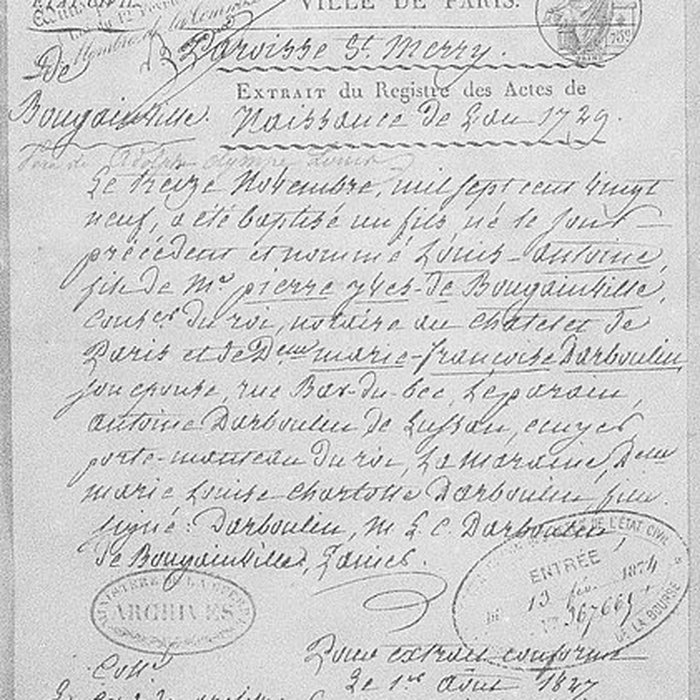 VILLE DE PARIS.
Paroisse St. Merry.
De
Bougainville.
Extrait du Registre des Actes de
Naissance de L'an 1729.
Le treize Novembre, mil sept cent vingt
neuf, a été baptisé un fils, né le jour
précédent et nommé Louis-antoine,
fils de Mr pierre yves de Bougainville,
Conser du roi, notaire au Chatelet de
Paris et de Delle marie-françoise Darboulin,
son epouse, rue Bar-du-bec, Le parain,
antoine Darboulin de Lussan, ecuyer
porte-manteau du roi, La maraine, Delle
marie Louise Charlotte Darboulin,
signé: Darboulin, M. L. C. Darboulin,
de Bougainville,
MINISTERE DE LA GUERRE
ARCHIVES
DE L'ÉTAT CIVIL
ENTRÉE
13 fév. 1874
No 367665
DE LA BOURSE
Pour extrait conforme
Le 1er Aout 1827